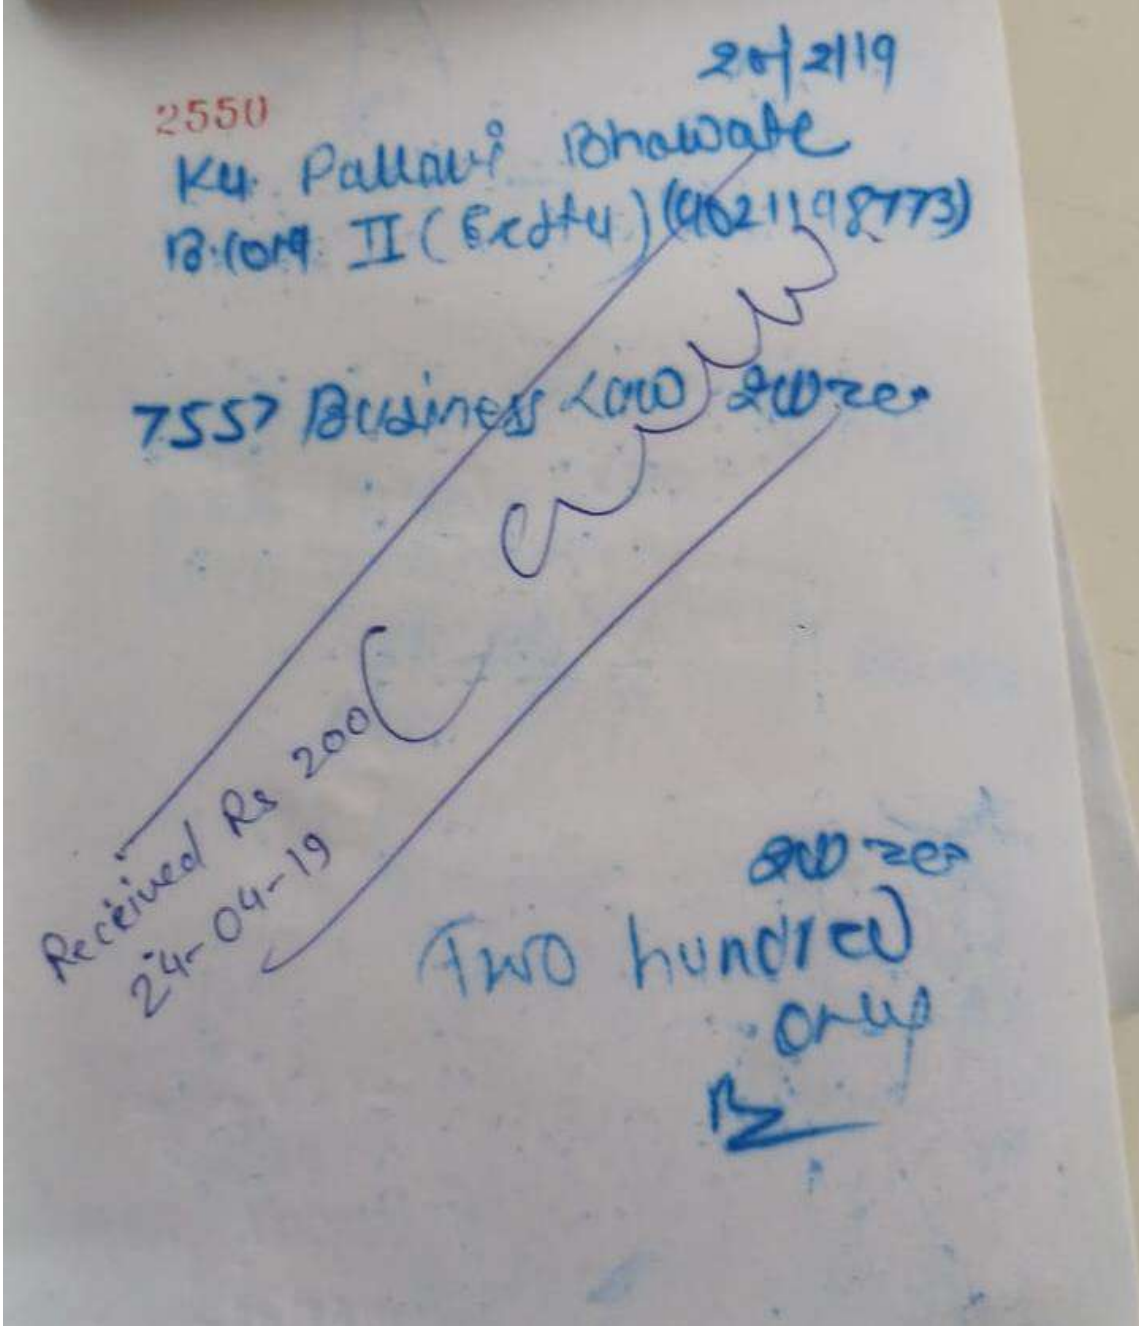 2550
Ku. Pallavi Bhawate
B.Com II
7557 Business Law 200=00
Received Rs 200
24-04-19
200=00
Two hundred
only